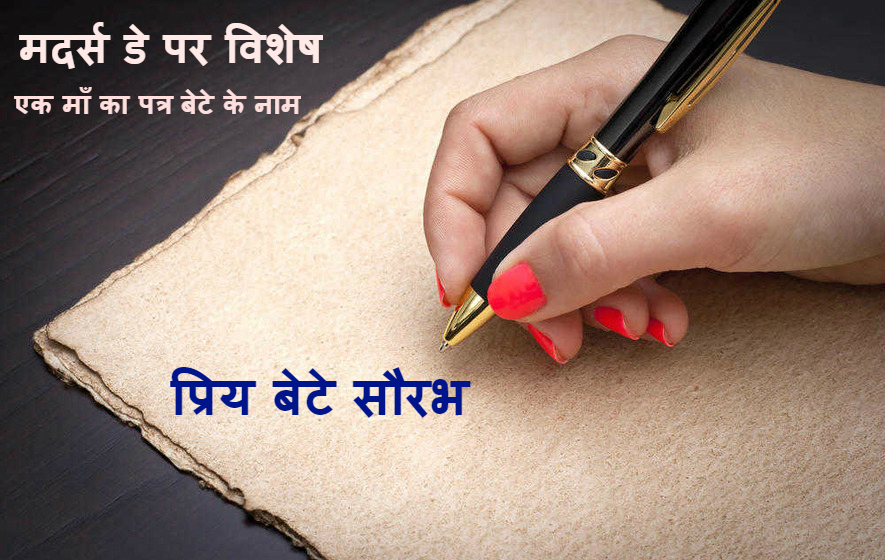 मदर्स डे पर विशेष
एक माँ का पत्र बेटे के नाम
प्रिय बेटे सौरभ